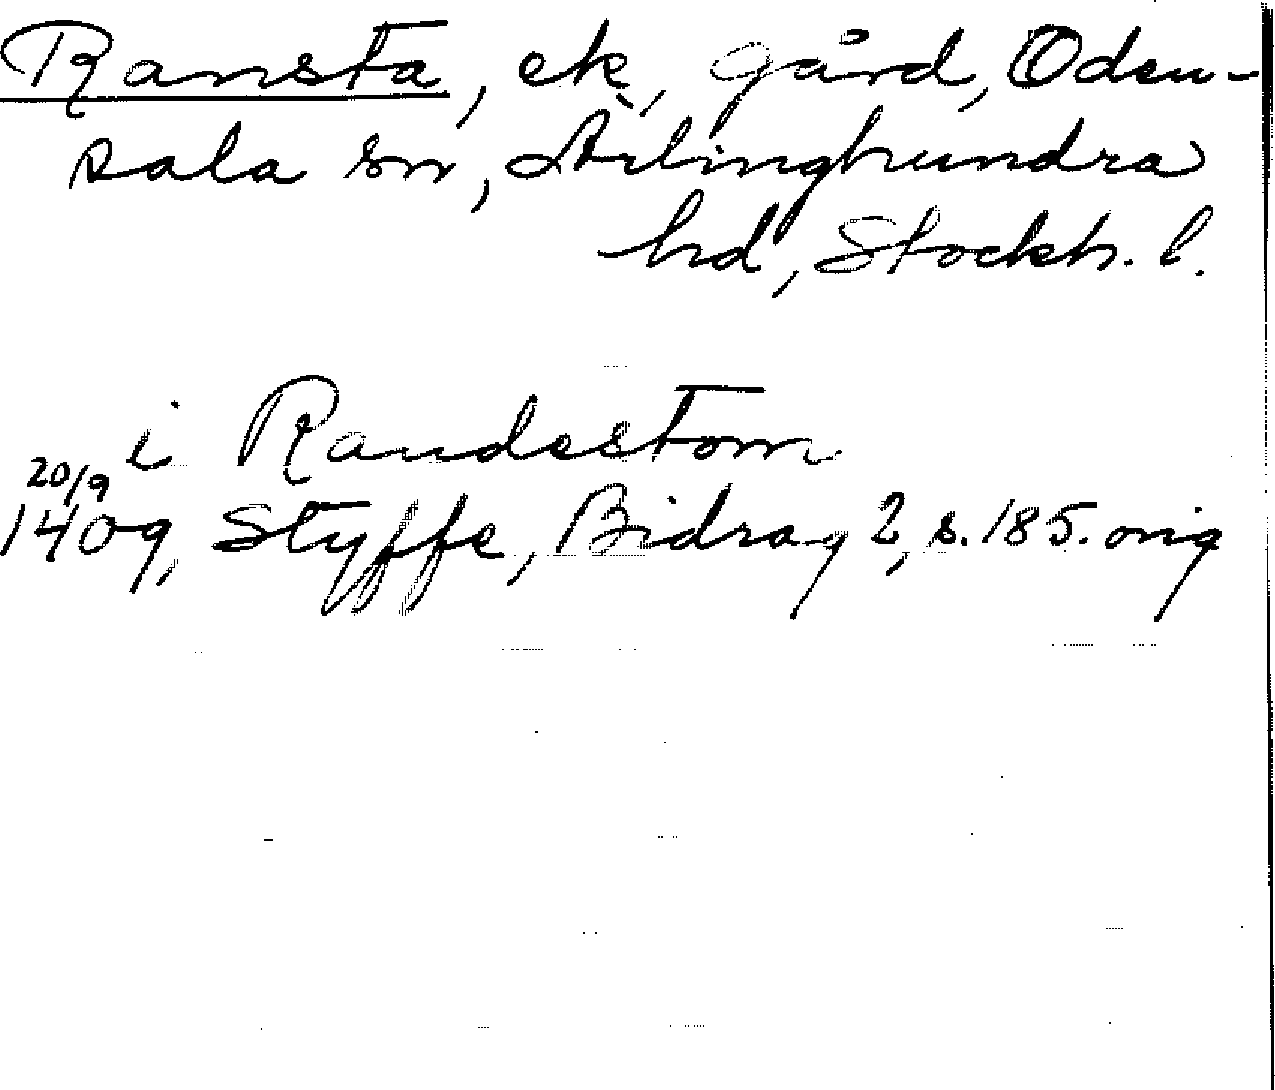 Ransta, ek, gård, Oden-
sala sn, Ärlinghundra
hd, Stockh. l.
i Randestom
20/9
1409, Styffe, Bidrag 2, s. 185. orig